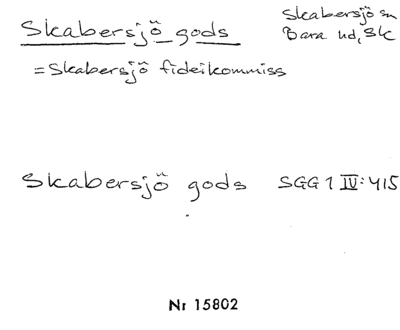 Skabersjö gods
Skabersjö sn
Bara hd, Sk
= Skabersjö fideikommiss
Skabersjö gods SGG 1 IV:415
Nr 15802